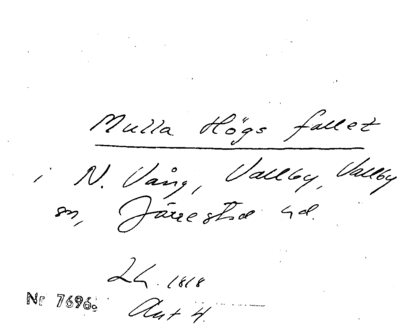 Mulla Högs fallet
i N. Vång, Vallby, Vallby
sn, Järrestad hd.
Lh. 1818
Nr 7696.
Akt 4.